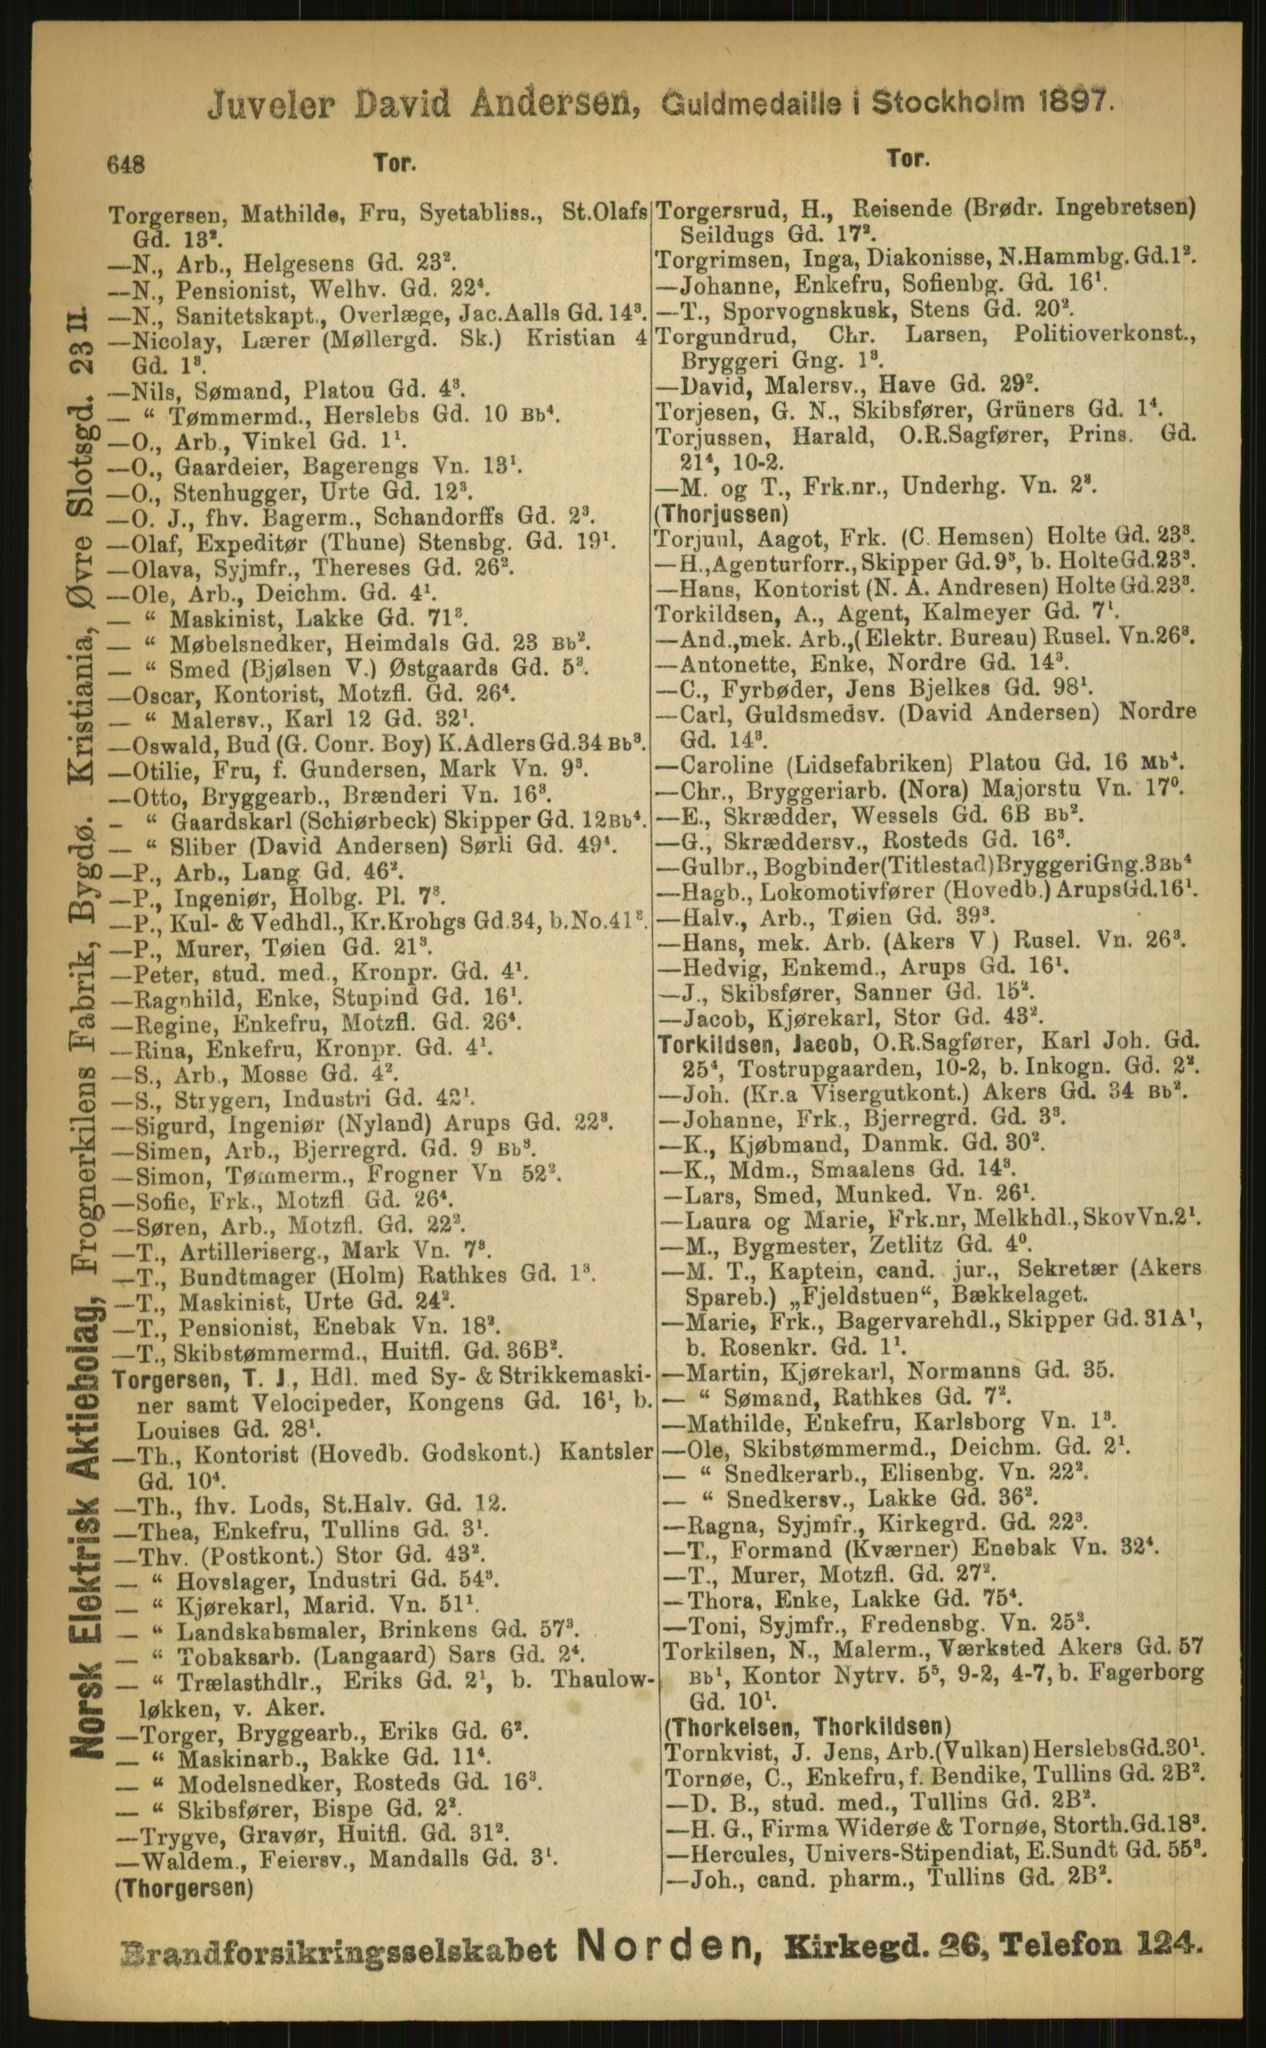 Juveler David Andersen, Guldmedaille i Stockholm 1897.
648 Tor. Tor.
Norsk Elektrisk Aktiebolag, Frognerkilens Fabrik, Bygdø. Kristiania, Øvre Slotsgd. 23 II.
Torgersen, Mathilde, Fru, Syetabliss., St.Olafs
Gd. 13².
—N., Arb., Helgesens Gd. 23².
—N., Pensionist, Welhv. Gd. 22⁴.
—N., Sanitetskapt., Overlæge, Jac.Aalls Gd. 14³.
—Nicolay, Lærer (Møllergd. Sk.) Kristian 4
Gd. 1³.
—Nils, Sømand, Platou Gd. 4³.
— “ Tømmermd., Herslebs Gd. 10 Bb⁴.
—O., Arb., Vinkel Gd. 1¹.
—O., Gaardeier, Bagerengs Vn. 13¹.
—O., Stenhugger, Urte Gd. 12³.
—O. J., fhv. Bagerm., Schandorffs Gd. 2³.
—Olaf, Expeditør (Thune) Stensbg. Gd. 19¹.
—Olava, Syjmfr., Thereses Gd. 26².
—Ole, Arb., Deichm. Gd. 4¹.
— “ Maskinist, Lakke Gd. 71³.
— “ Møbelsnedker, Heimdals Gd. 23 Bb².
— “ Smed (Bjølsen V.) Østgaards Gd. 5³.
—Oscar, Kontorist, Motzfl. Gd. 26⁴.
— “ Malersv., Karl 12 Gd. 32¹.
—Oswald, Bud (G. Conr. Boy) K.Adlers Gd.34 Bb³.
—Otilie, Fru, f. Gundersen, Mark Vn. 9³.
—Otto, Bryggearb., Brænderi Vn. 16³.
- “ Gaardskarl (Schiørbeck) Skipper Gd. 12Bb⁴.
— “ Sliber (David Andersen) Sørli Gd. 49⁴.
—P., Arb., Lang Gd. 46².
—P., Ingeniør, Holbg. Pl. 7³.
—P., Kul- & Vedhdl., Kr.Krohgs Gd.34, b.No.41³.
—P., Murer, Tøien Gd. 21³.
—Peter, stud. med., Kronpr. Gd. 4¹.
—Ragnhild, Enke, Stupind Gd. 16¹.
—Regine, Enkefru, Motzfl. Gd. 26⁴.
—Rina, Enkefru, Kronpr. Gd. 4¹.
—S., Arb., Mosse Gd. 4².
—S., Strygeri, Industri Gd. 42¹.
—Sigurd, Ingeniør (Nyland) Arups Gd. 22³.
—Simen, Arb., Bjerregrd. Gd. 9 Bb³.
—Simon, Tømmerm., Frogner Vn 52².
—Sofie, Frk., Motzfl. Gd. 26⁴.
—Søren, Arb., Motzfl. Gd. 22².
—T., Artilleriserg., Mark Vn. 7³.
—T., Bundtmager (Holm) Rathkes Gd. 1³.
—T., Maskinist, Urte Gd. 24².
—T., Pensionist, Enebak Vn. 18².
—T., Skibstømmermd., Huitfl. Gd. 36B².
Torgersen, T. J., Hdl. med Sy- & Strikkemaski-
ner samt Velocipeder, Kongens Gd. 16¹, b.
Louises Gd. 28¹.
—Th., Kontorist (Hovedb. Godskont.) Kantsler
Gd. 10⁴.
—Th., fhv. Lods, St.Halv. Gd. 12.
—Thea, Enkefru, Tullins Gd. 3¹.
—Thv. (Postkont.) Stor Gd. 43².
— “ Hovslager, Industri Gd. 54³.
— “ Kjørekarl, Marid. Vn. 51¹.
— “ Landskabsmaler, Brinkens Gd. 57³.
— “ Tobaksarb. (Langaard) Sars Gd. 2⁴.
— “ Trælasthdlr., Eriks Gd. 2¹, b. Thaulow-
løkken, v. Aker.
—Torger, Bryggearb., Eriks Gd. 6².
— “ Maskinarb., Bakke Gd. 11⁴.
— “ Modelsnedker, Rosteds Gd. 16³.
— “ Skibsfører, Bispe Gd. 2².
—Trygve, Gravør, Huitfl. Gd. 31².
—Waldem., Feiersv., Mandalls Gd. 3¹.
(Thorgersen)
Torgersrud, H., Reisende (Brødr. Ingebretsen)
Seildugs Gd. 17².
Torgrimsen, Inga, Diakonisse, N.Hammbg. Gd.1².
—Johanne, Enkefru, Sofienbg. Gd. 16¹.
—T., Sporvognskusk, Stens Gd. 20².
Torgundrud, Chr. Larsen, Politioverkonst.,
Bryggeri Gng. 1³.
—David, Malersv., Have Gd. 29².
Torjesen, G. N., Skibsfører, Grüners Gd. 1⁴.
Torjussen, Harald, O.R.Sagfører, Prins. Gd.
21⁴, 10-2.
—M. og T., Frk.nr., Underhg. Vn. 2³.
(Thorjussen)
Torjuul, Aagot, Frk. (C. Hemsen) Holte Gd. 23³.
—H., Agenturforr., Skipper Gd.9³, b. HolteGd.23³.
—Hans, Kontorist (N. A. Andresen) Holte Gd.23³.
Torkildsen, A., Agent, Kalmeyer Gd. 7¹.
—And., mek. Arb.,(Elektr. Bureau) Rusel. Vn.26³.
—Antonette, Enke, Nordre Gd. 14³.
—C., Fyrbøder, Jens Bjelkes Gd. 98¹.
—Carl, Guldsmedsv. (David Andersen) Nordre
Gd. 14³.
—Caroline (Lidsefabriken) Platou Gd. 16 Mb⁴.
—Chr., Bryggeriarb. (Nora) Majorstu Vn. 17⁰.
—E., Skrædder, Wessels Gd. 6B Bb².
—G., Skræddersv., Rosteds Gd. 16³.
—Gulbr., Bogbinder(Titlestad)BryggeriGng.3Bb⁴
—Hagb., Lokomotivfører (Hovedb.) Arups Gd.16¹.
—Halv., Arb., Tøien Gd. 39³.
—Hans, mek. Arb. (Akers V ) Rusel. Vn. 26³.
—Hedvig, Enkemd., Arups Gd. 16¹.
—J., Skibsfører, Sanner Gd. 15².
—Jacob, Kjørekarl, Stor Gd. 43².
Torkildsen, Jacob, O.R.Sagfører, Karl Joh. Gd.
25⁴, Tostrupgaarden, 10-2, b. Inkogn. Gd. 2².
—Joh. (Kr.a Visergutkont.) Akers Gd. 34 Bb².
—Johanne, Frk., Bjerregrd. Gd. 3³.
—K., Kjøbmand, Danmk. Gd. 30².
—K., Mdm., Smaalens Gd. 14³.
—Lars, Smed, Munked. Vn. 26¹.
—Laura og Marie, Frk.nr, Melkhdl., Skov Vn.2¹.
—M., Bygmester, Zetlitz Gd. 4⁰.
—M. T., Kaptein, cand. jur., Sekretær (Akers
Spareb.) „Fjeldstuen“, Bækkelaget.
—Marie, Frk., Bagervarehdl., Skipper Gd. 31A¹,
b. Rosenkr. Gd. 1¹.
—Martin, Kjørekarl, Normanns Gd. 35.
— “ Sømand, Rathkes Gd. 7².
—Mathilde, Enkefru, Karlsborg Vn. 1³.
—Ole, Skibstømmermd., Deichm. Gd. 2¹.
— “ Snedkerarb., Elisenbg. Vn. 22².
— “ Snedkersv., Lakke Gd. 36².
—Ragna, Syjmfr., Kirkegrd. Gd. 22³.
—T., Formand (Kværner) Enebak Vn. 32⁴.
—T., Murer, Motzfl. Gd. 27².
—Thora, Enke, Lakke Gd. 75⁴.
—Toni, Syjmfr., Fredensbg. Vn. 25².
Torkilsen, N., Malerm., Værksted Akers Gd. 57
Bb¹, Kontor Nytrv. 5⁵, 9-2, 4-7, b. Fagerborg
Gd. 10¹.
(Thorkelsen, Thorkildsen)
Tornkvist, J. Jens, Arb.(Vulkan) HerslebsGd.30¹.
Tornøe, C., Enkefru, f. Bendike, Tullins Gd. 2B².
—D. B., stud. med., Tullins Gd. 2B².
—H. G., Firma Widerøe & Tornøe, Storth.Gd.18³.
—Hercules, Univers-Stipendiat, E.Sundt Gd. 55³.
—Joh., cand. pharm., Tullins Gd. 2B².
Brandforsikringsselskabet Norden, Kirkegd. 26, Telefon 124.